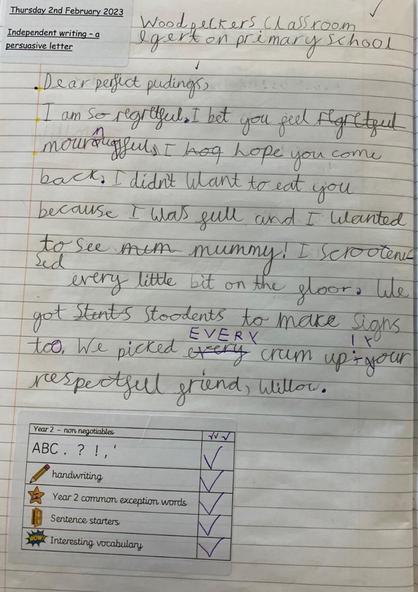 Thursday 2nd February 2023
Independent writing - a
persuasive letter
Woodpeckers Classroom
Egerton primary school
Dear perfict pudings,
I am so regretful. I bet you feel regretful
mournful, I hop hope you come
back. I didn't want to eat you
because I was full and I wanted
to see mum mummy! I scrooteni
sed every little bit on the floor. We
got Stent's Stoodents to make signs
too. We picked every EVERY crum up! your
respectfull friend, Willow.
Year 2 - non negotiables
ABC . ? ! , '
handwriting
Year 2 common exception words
Sentence starters
WOW Interesting vocabulary